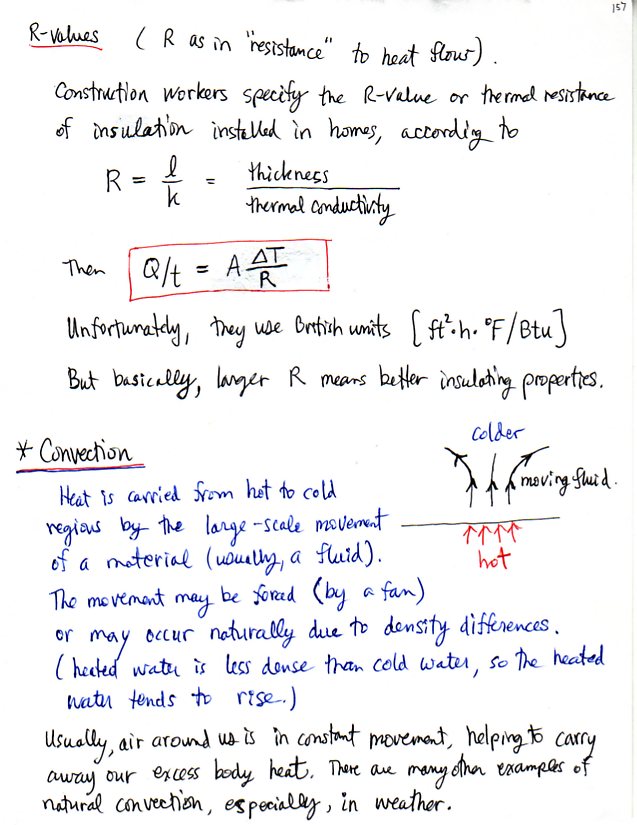 157
R-values ( R as in "resistance" to heat flow).
Construction workers specify the R-value or thermal resistance
of insulation installed in homes, according to
R = l/k = thickness/thermal conductivity
Then Q/t = A ΔT/R
Unfortunately, they use British units [ft²·h·°F/Btu]
But basically, larger R means better insulating properties.
* Convection
colder
moving fluid.
hot
Heat is carried from hot to cold
regions by the large-scale movement
of a material (usually, a fluid).
The movement may be forced (by a fan)
or may occur naturally due to density differences.
(heated water is less dense than cold water, so the heated
water tends to rise.)
Usually, air around us is in constant movement, helping to carry
away our excess body heat. There are many other examples of
natural convection, especially, in weather.